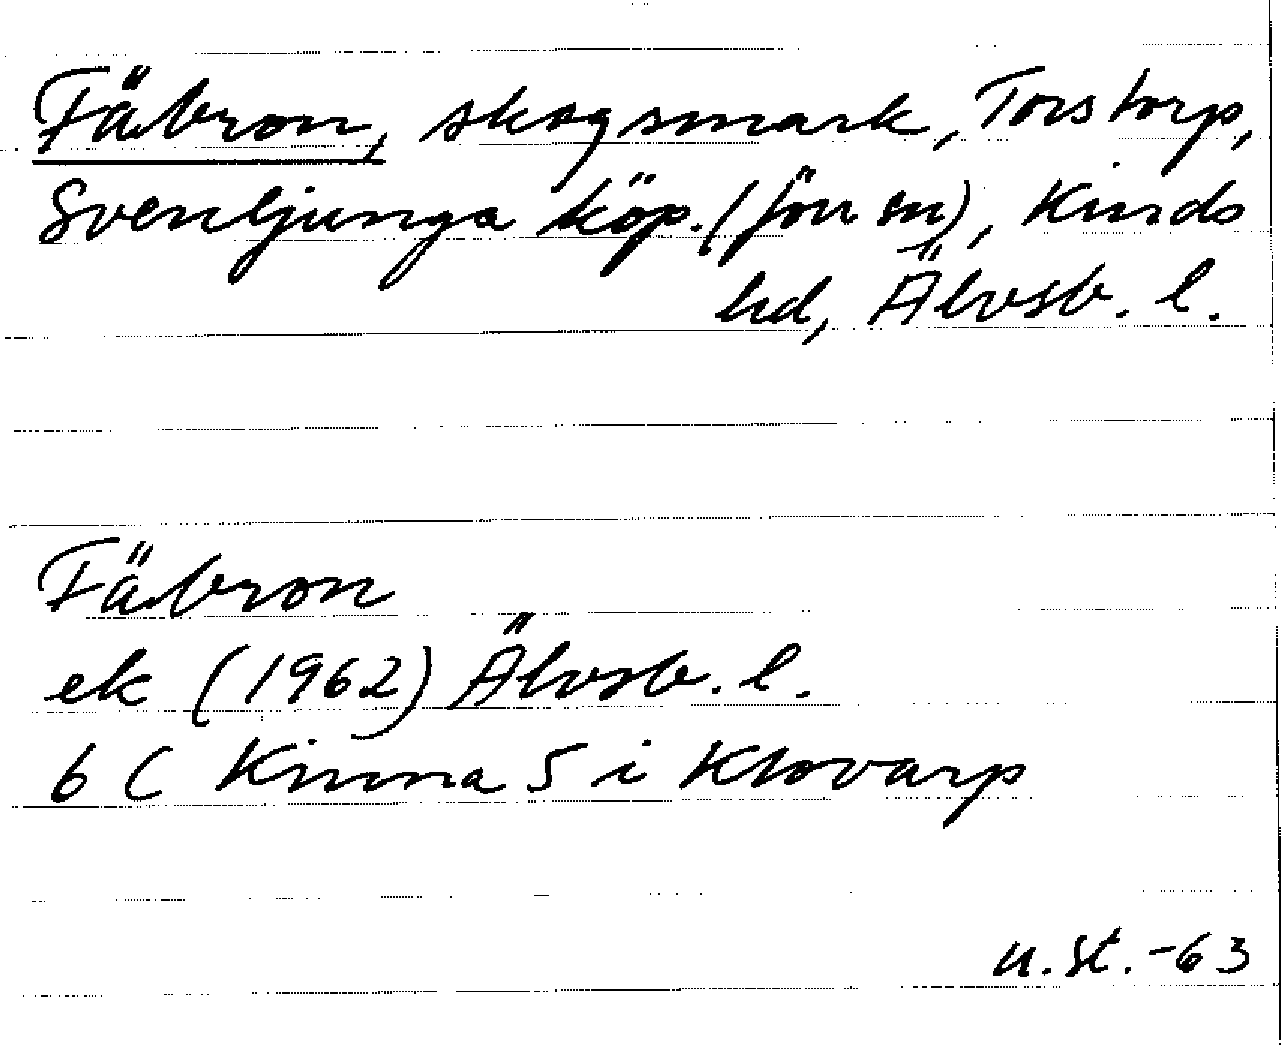 Fäbron, skogsmark, Torstorp,
Svenljunga köp. (förr sn), Kinds
hd, Älvsb. l.
Fäbron
ek (1962) Älvsb. l.
6 C Kinna 5 i Klovarp
u. st. -63